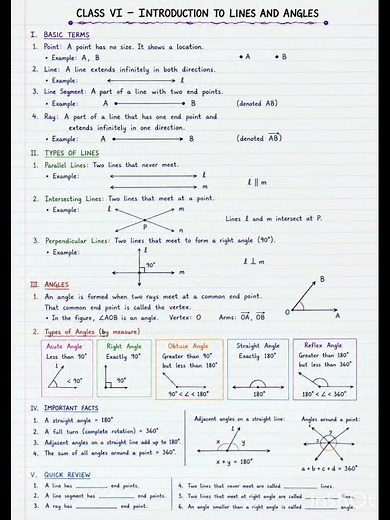 CLASS VI – INTRODUCTION TO LINES AND ANGLES
I. BASIC TERMS
1. Point: A point has no size. It shows a location.
• Example: A, B
• A • B
2. Line: A line extends infinitely in both directions.
• Example: l
3. Line Segment: A part of a line with two end points.
• Example: A B (denoted AB)
4. Ray: A part of a line that has one end point and
extends infinitely in one direction.
• Example: A B (denoted AB)
II. TYPES OF LINES
1. Parallel Lines: Two lines that never meet.
• Example: l
m
l || m
2. Intersecting Lines: Two lines that meet at a point.
• Example: l m
P
n m
Lines l and m intersect at P.
3. Perpendicular Lines: Two lines that meet to form a right angle (90°).
• Example: l
90°
m
l ⊥ m
III. ANGLES
1. An angle is formed when two rays meet at a common end point.
That common end point is called the vertex.
• In the figure, ∠AOB is an angle. Vertex: O Arms: OA, OB
B
O A
2. Types of Angles (by measure)
Acute Angle
Less than 90°
< 90°
Right Angle
Exactly 90°
90°
Obtuse Angle
Greater than 90°
but less than 180°
90° < ∠ < 180°
Straight Angle
Exactly 180°
180°
Reflex Angle
Greater than 180°
but less than 360°
180° < ∠ < 360°
IV. IMPORTANT FACTS
1. A straight angle = 180°
2. A full turn (complete rotation) = 360°
3. Adjacent angles on a straight line add up to 180°.
4. The sum of all angles around a point = 360°.
Adjacent angles on a straight line:
l
x y
x + y = 180°
Angles around a point:
a + b + c + d = 360°
V. QUICK REVIEW
1. A line has ________ end points.
2. A line segment has ________ end points.
3. A ray has ________ end point.
4. Two lines that never meet are called ________ lines.
5. Two lines that meet at right angle are called ________ lines.
6. An angle smaller than a right angle is called ________ angle.